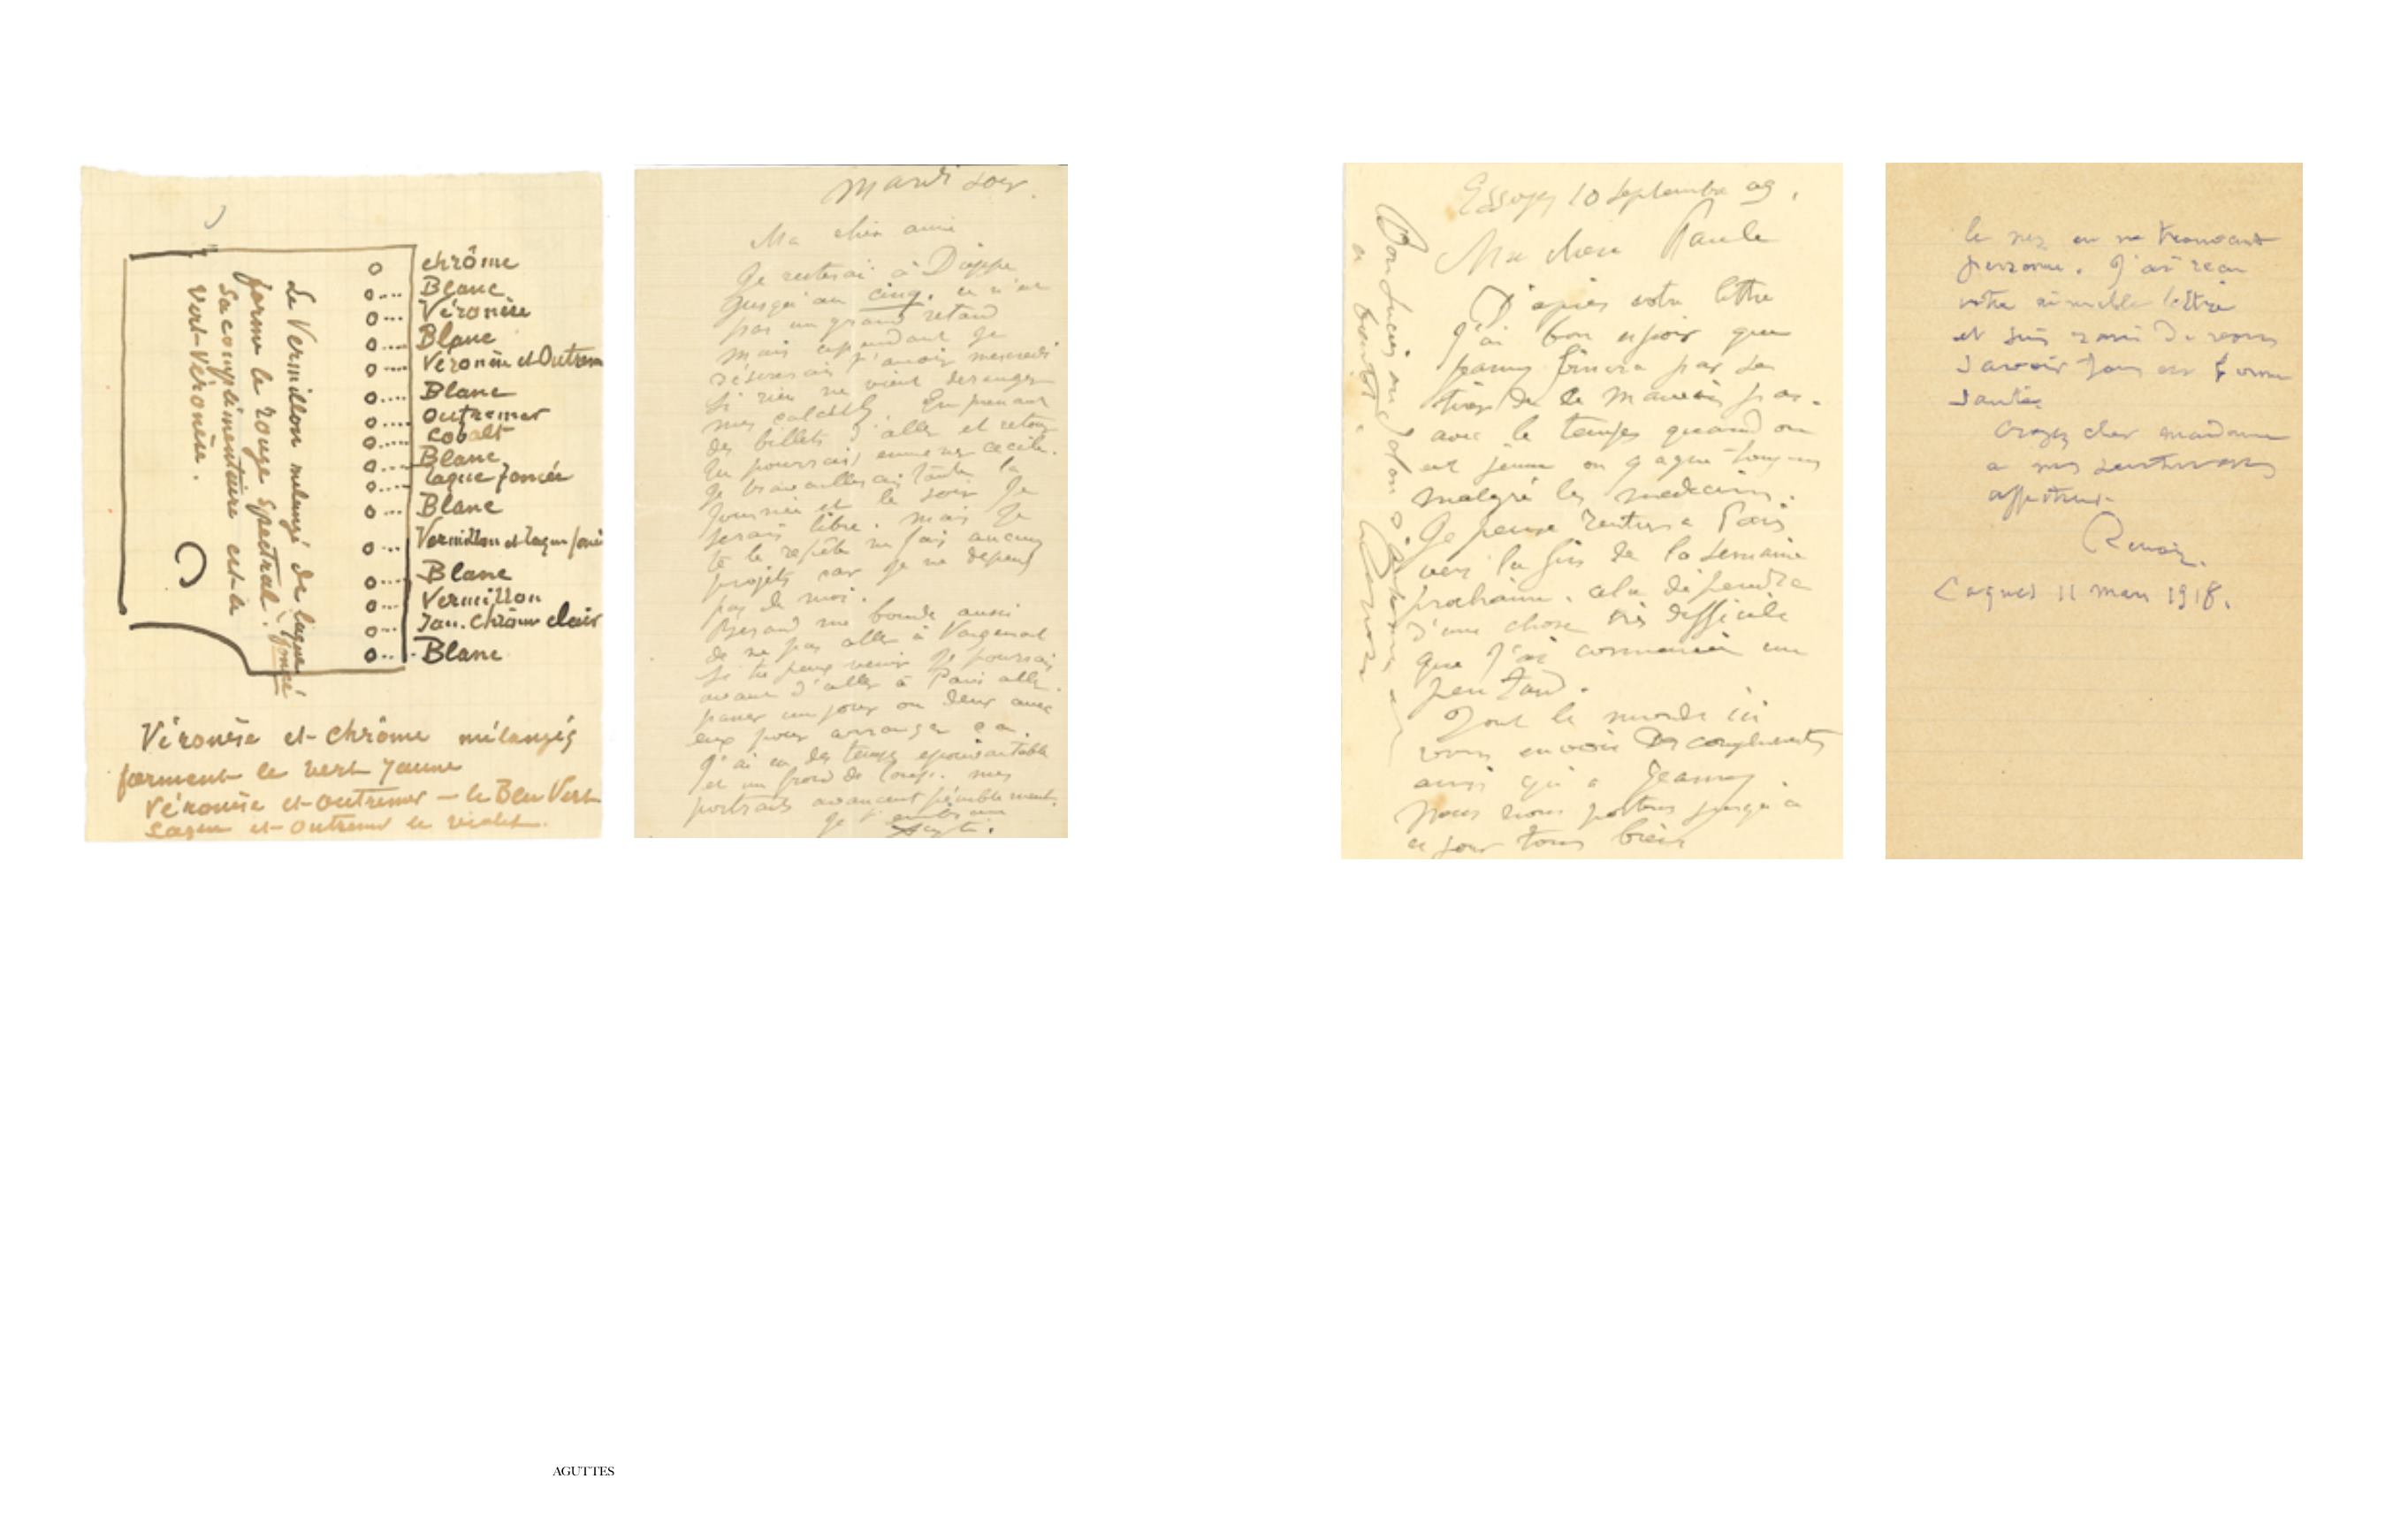 chrôme
Blanc
Véronèse
Blanc
Véronèse et Outrem
Blanc
Outremer
Cobalt
Blanc
laque foncée
Blanc
Vermillon et laque foncé
Blanc
Vermillon
Jau. Chrôme clair
Blanc
Le Vermillon mélangé de laque foncé
forme le rouge spectral.
Sa complémentaire est le
Vert-Véronèse.
Véronèse et chrôme mélangés
forment le vert jaune
Véronèse et outremer – le Bleu Vert
Laque et outremer le violet.
Mardi soir.
Ma chère amie
Je resterai à Dieppe
jusqu'au cinq. ce n'est
pas un grand retard
mais cependant je
désirerais t'avoir mercredi
si rien ne vient deranger
mes calculs. En prenant
des billets d'aller et retour
tu pourrais emmener cecile.
Je travaillerai toute la
journée et le soir je
serais libre. mais je
te le repète ne fais aucuns
projets car je ne depend
pas de moi.
Berard me boude aussi
de ne pas aller à Vargemont
Si tu peux venir je pourrais
avant d'aller à Paris aller
passer un jour ou deux avec
eux pour arranger ça.
J'ai eu des temps epouvantable
et un froid de loup. mes
portraits avancent péniblement.
je t'embrasse
Essoyes 10 septembre 09.
Ma chère Paule
D'après votre lettre
j'ai bon espoir que
finira par se
tirer de le mauvais pas.
avec le temps quand on
est jeune on gagne toujours
malgré les medecins.
Je pense rentrer a Paris
vers la fin de la semaine
prochaine. cela dépendra
d'une chose très difficile
que j'ai commencée un
peu tard.
Tout le monde ici
vous envoie des compliments
ainsi qu'a
Nous nous portons jusqu'à
ce jour tous bien
Renoir
le nez en ne trouvant
personne. J'ai reçu
votre aimable lettre
et suis ravi de vous
savoir tous en bonne
santé.
Croyez cher madame
a mes sentiments
affectueux
Renoir.
Cagnes 11 mars 1918.
AGUTTES